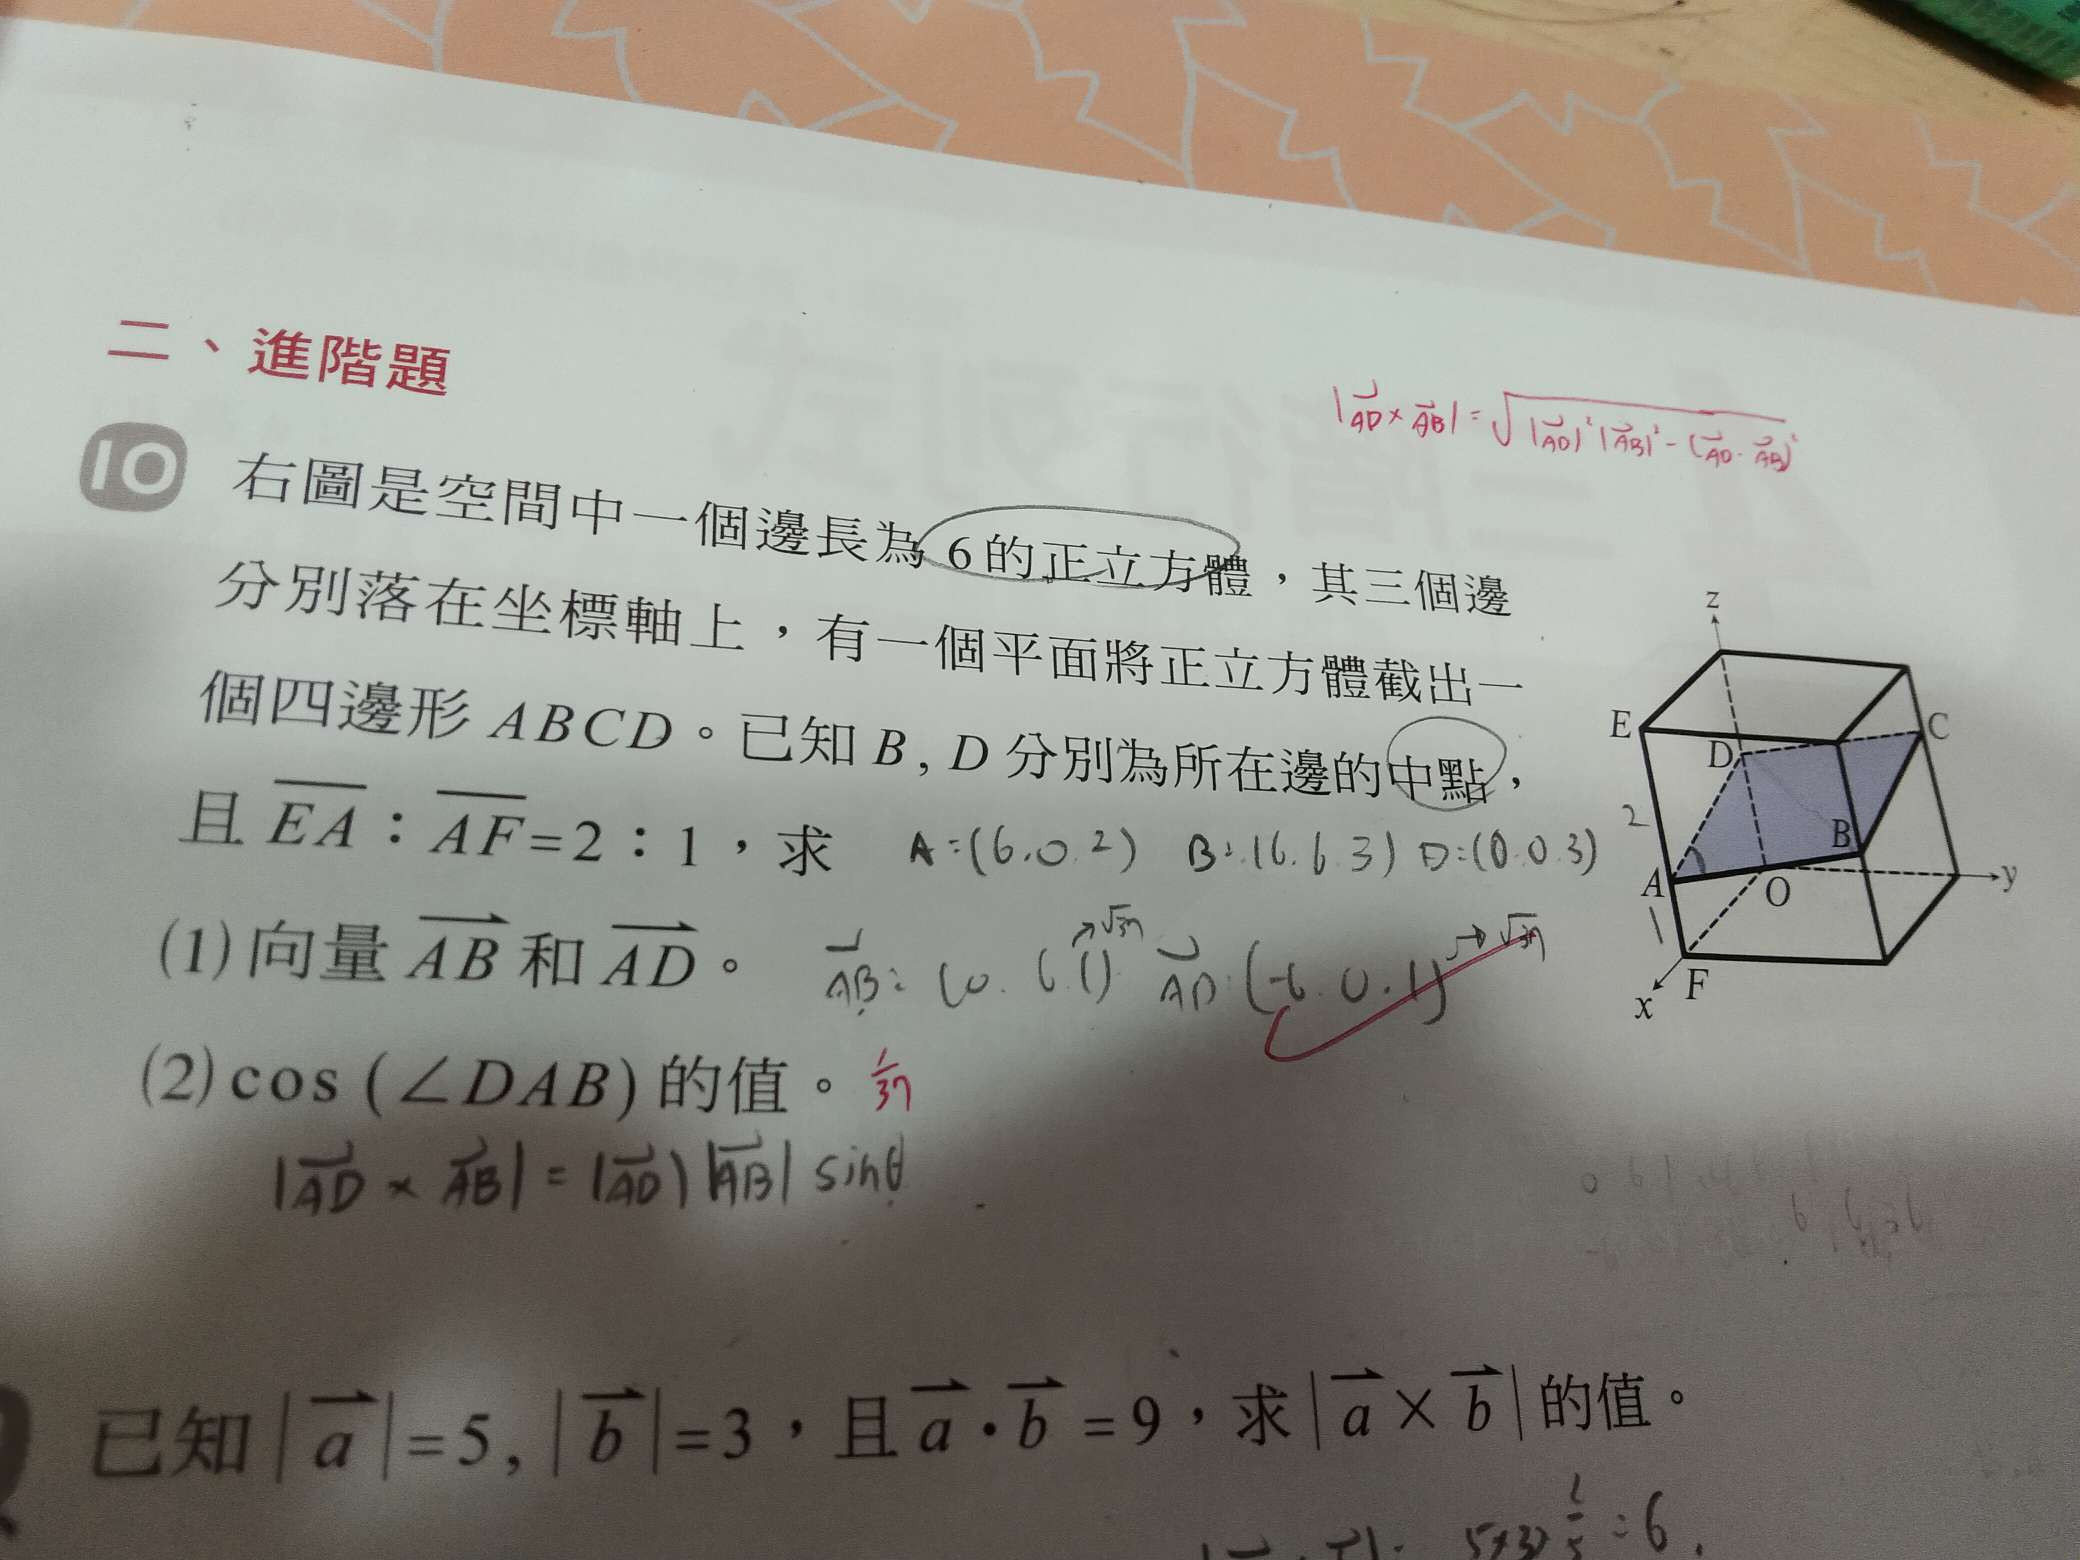 二、進階題
|AD × AB| = √|AD|²|AB|² − (AD · AB)²
10 右圖是空間中一個邊長為 6 的正立方體，其三個邊
分別落在坐標軸上，有一個平面將正立方體截出一
個四邊形 ABCD。已知 B , D 分別為所在邊的中點，
且 EA：AF=2：1，求 A=(6.0.2) B:(6.6.3) D=(0.0.3)
(1)向量 AB 和 AD。 AB=(0.6.1) →√37 AD(-6.0.1) →√37
(2)cos (∠DAB) 的值。 1/37
|AD × AB| = |AD| |AB| sinθ
z
E
C
D
2
B
A
O
y
1
F
x
已知 | a |=5, | b |=3，且 a · b =9，求 | a × b | 的值。
=6